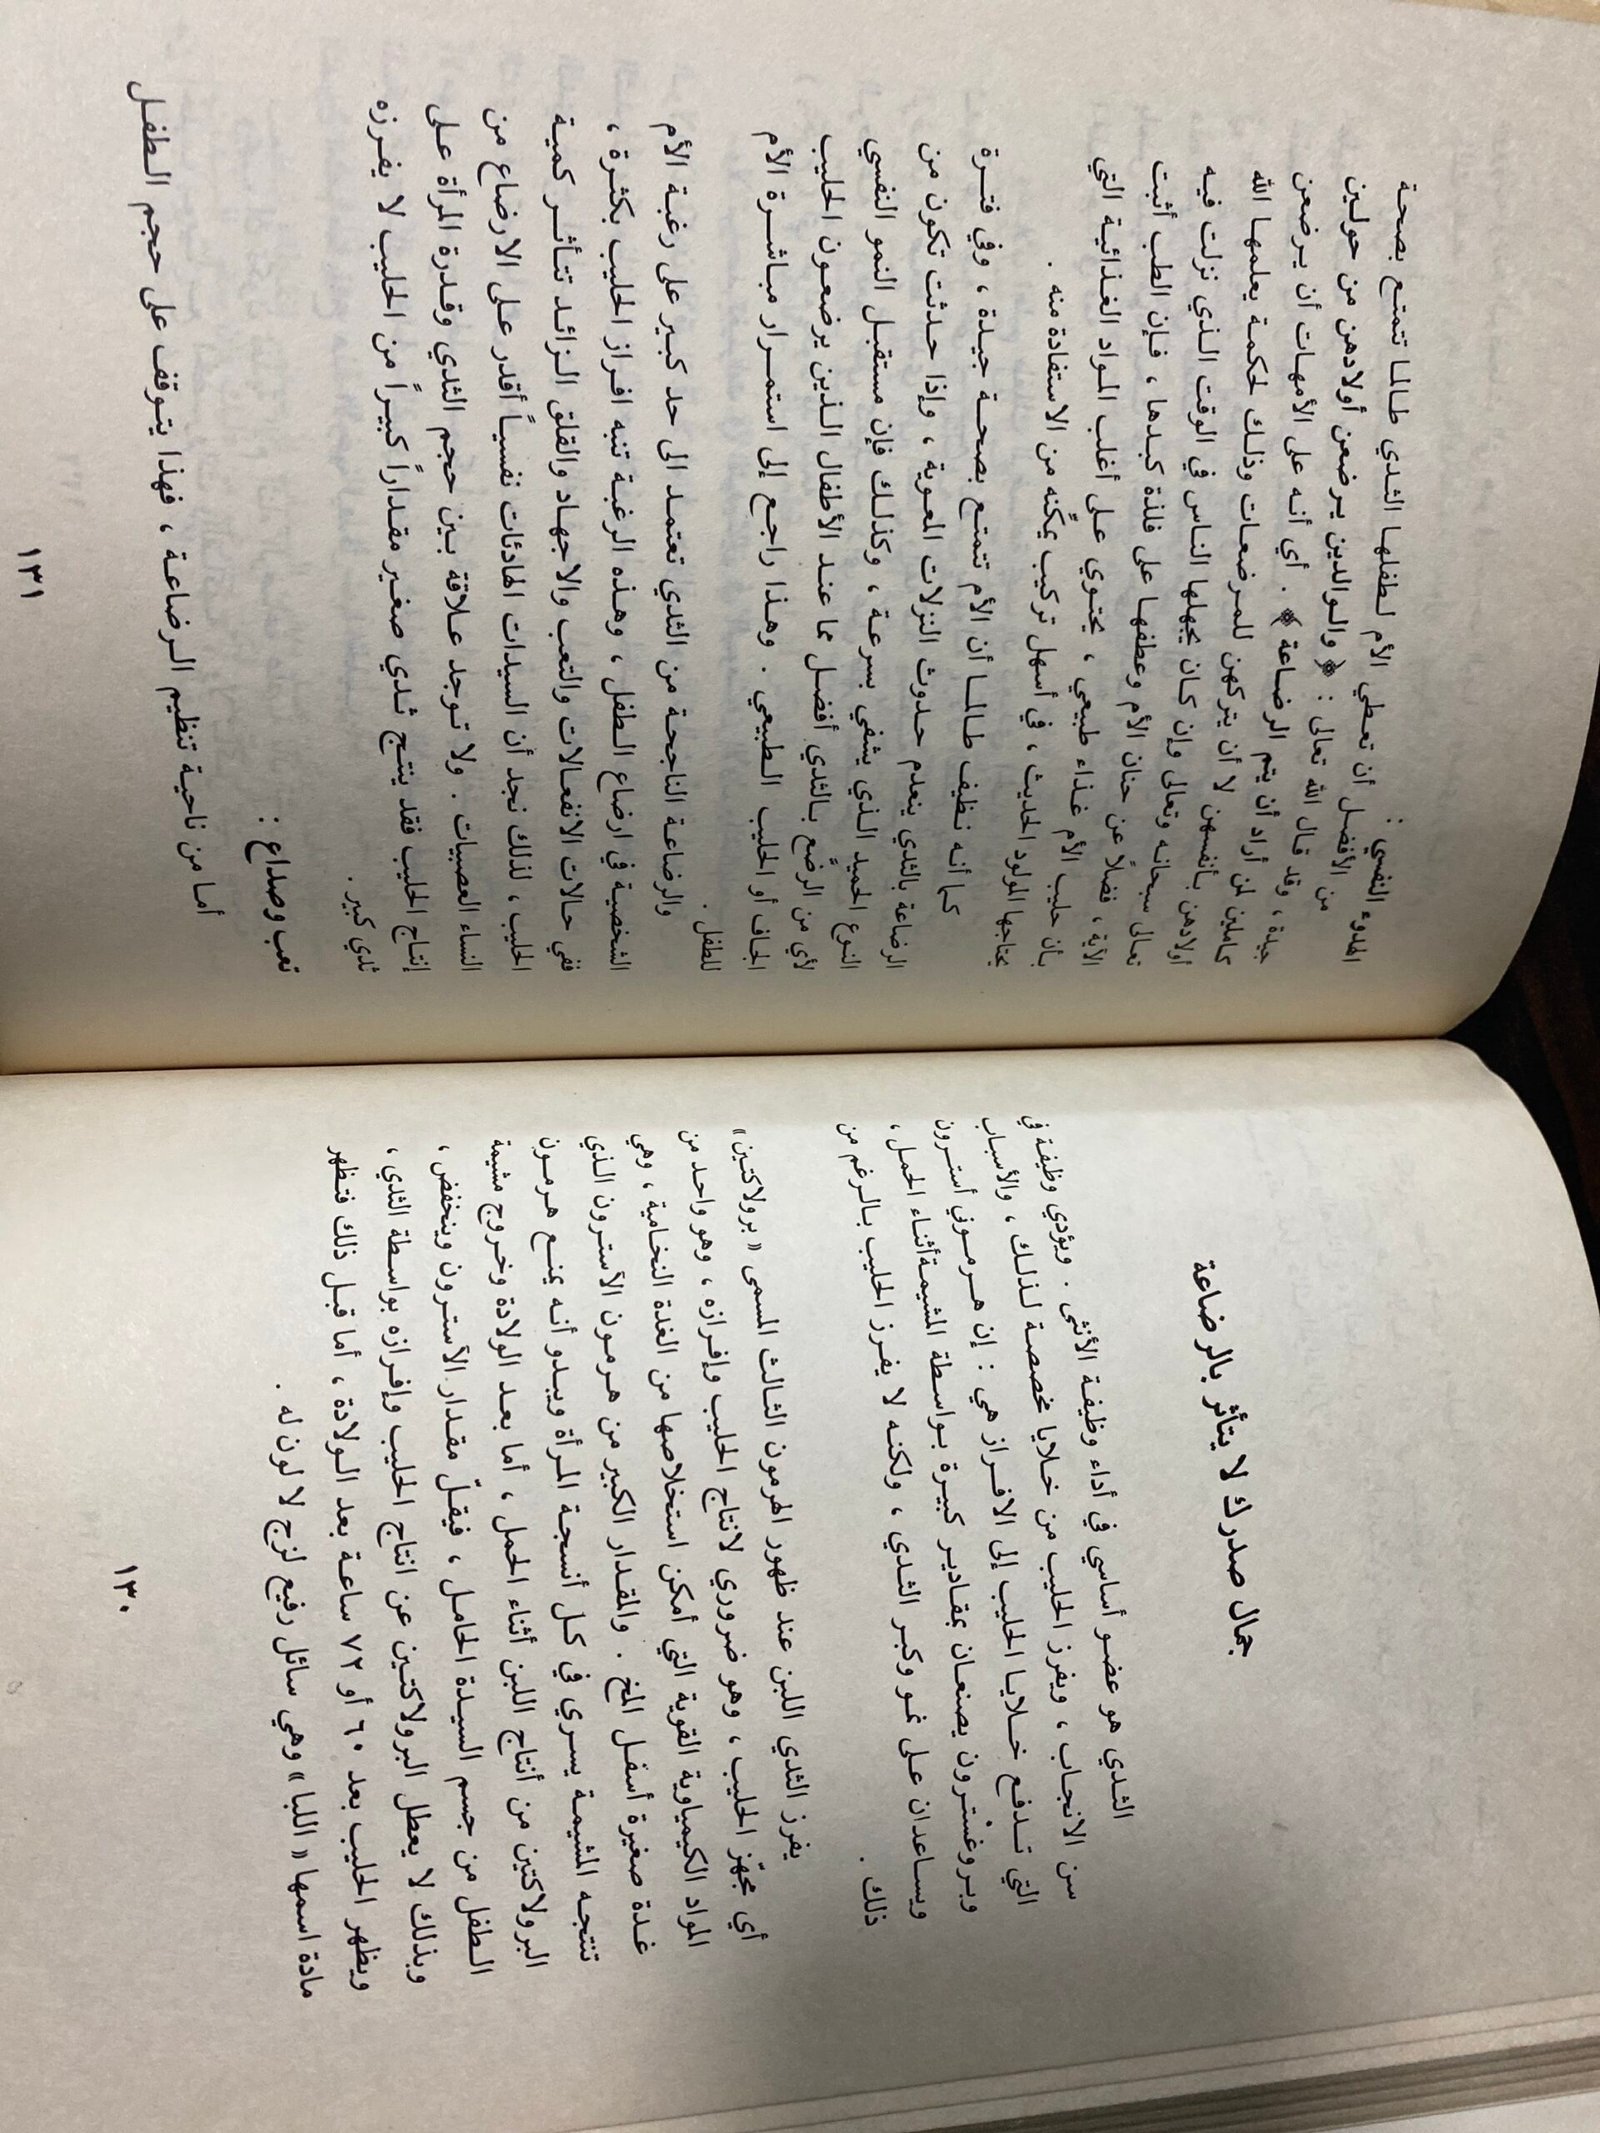 جمال صدرك لا يتأثر بالرضاعة
الثدي هو عضو أساسي في أداء وظيفة الأنثى . ويؤدي وظيفة في
سن الانجاب ، ويفرز الحليب من خلايا مخصصة لذلك ، والأسباب
التي تدفع خلايا الحليب إلى الافراز هي : إن هرموني أسترون
وبروغسترون يصنعان بمقادير كبيرة بواسطة المشيمة أثناء الحمل ،
ويساعدان على نمو وكبر الثدي ، ولكنه لا يفرز الحليب بالرغم من
ذلك .
يفرز الثدي اللبن عند ظهور الهرمون الثالث المسمى « برولاكتين »
أي مجهّز الحليب ، وهو ضروري لانتاج الحليب وإفرازه ، وهو واحد من
المواد الكيمياوية القوية التي أمكن استخلاصها من الغدة النخامية ، وهي
غدة صغيرة أسفل المخ . والمقدار الكبير من هرمون الأسترون الذي
تنتجه المشيمة يسري في كل أنسجة المرأة ويبدو أنه يمنع هرمون
البرولاكتين من أنتاج اللبن أثناء الحمل ، أما بعد الولادة وخروج مشيمة
الطفل من جسم السيدة الحامل ، فيقلّ مقدار الأسترون وينخفض ،
وبذلك لا يعطل البرولاكتين عن انتاج الحليب وإفرازه بواسطة الثدي ،
ويظهر الحليب بعد ٦٠ أو ٧٢ ساعة بعد الولادة ، أما قبل ذلك فتظهر
مادة اسمها « اللبا » وهي سائل رفيع لزج لا لون له .
١٣٠
الهدوء النفسي :
من الأفضل أن تعطي الأم لطفلها الثدي طالما تتمتع بصحة
جيدة ، وقد قال الله تعالى : ﴿ والوالدين يرضعن أولادهن من حولين
كاملين لمن أراد أن يتم الرضاعة ﴾ . أي أنه على الأمهات أن يرضعن
أولادهن بأنفسهن لا أن يتركهن للمرضعات وذلك لحكمة يعلمها الله
تعالى سبحانه وتعالى وإن كان يجهلها الناس في الوقت الذي نزلت فيه
الآية ، فضلاً عن حنان الأم وعطفها على فلذة كبدها ، فإن الطب أثبت
بأن حليب الأم غذاء طبيعي ، يحتوي على أغلب المواد الغذائية التي
يحتاجها المولود الحديث ، في أسهل تركيب يمكّنه من الاستفادة منه .
كما أنه نظيف طالما أن الأم تتمتع بصحة جيدة ، وفي فترة
الرضاعة بالثدي ينعدم حدوث النزلات المعوية ، وإذا حدثت تكون من
النوع الحميد الذي يشفي بسرعة ، وكذلك فإن مستقبل النمو النفسي
لأي من الرضّع بالثدي أفضل مما عند الأطفال الذين يرضعون الحليب
الجاف أو الحليب الطبيعي . وهذا راجع إلى استمرار مباشرة الأم
للطفل .
والرضاعة الناجحة من الثدي تعتمد الى حد كبير على رغبة الأم
الشخصية في ارضاع الطفل ، وهذه الرغبة تنبه افراز الحليب بكثرة ،
ففي حالات الانفعالات والتعب والاجهاد والقلق الزائد تتأثر كمية
الحليب ، لذلك نجد أن السيدات الهادئات نفسياً أقدر على الارضاع من
النساء العصبيات . ولا توجد علاقة بين حجم الثدي وقدرة المرأة على
إنتاج الحليب فقد ينتج ثدي صغير مقداراً كبيراً من الحليب لا يفرزه
ثدي كبير .
تعب وصداع :
أما من ناحية تنظيم الرضاعة ، فهذا يتوقف على حجم الطفل
١٣١